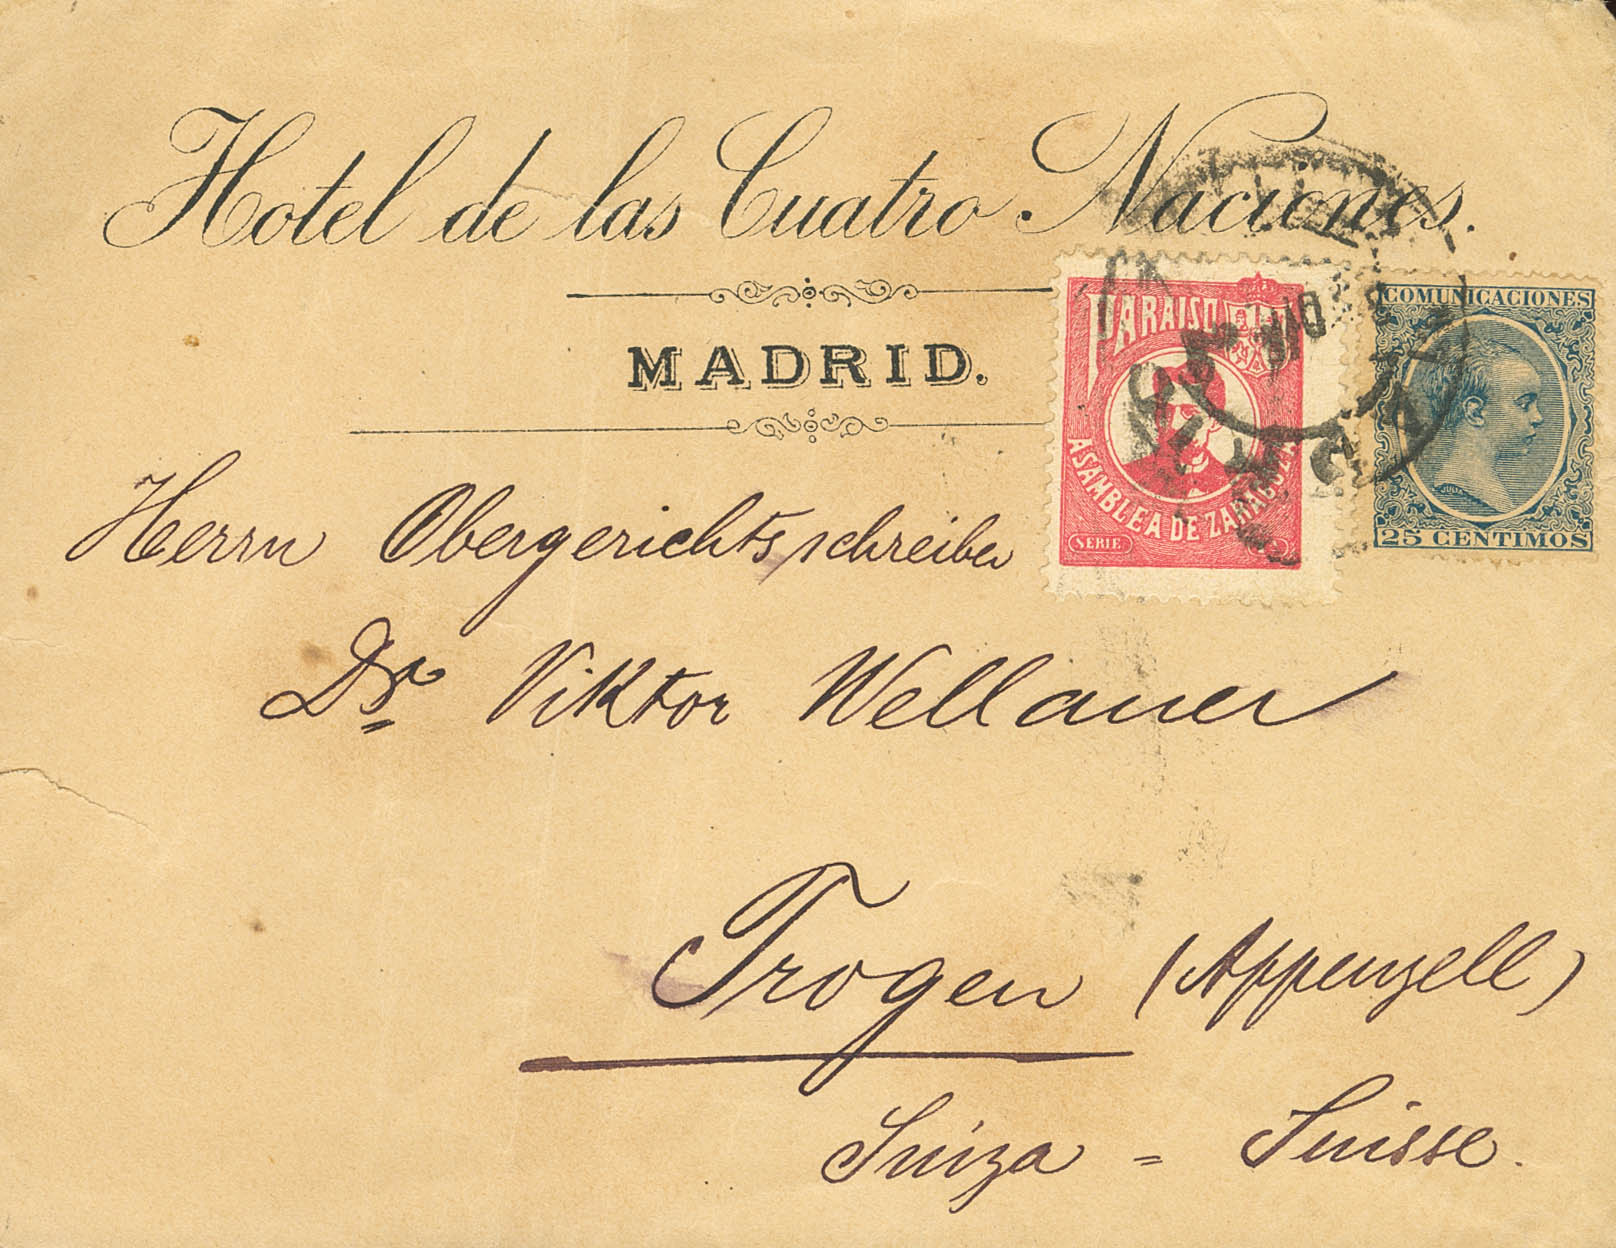 Hotel de las Cuatro Naciones.
MADRID.
PARAISO
ASAMBLEA DE ZARAGOZA
SERIE
COMUNICACIONES
JULIA
25 CENTIMOS
Herrn Obergerichtsschreiber
Dr Viktor Wellauer
Trogen (Appenzell)
Suiza = Suisse.